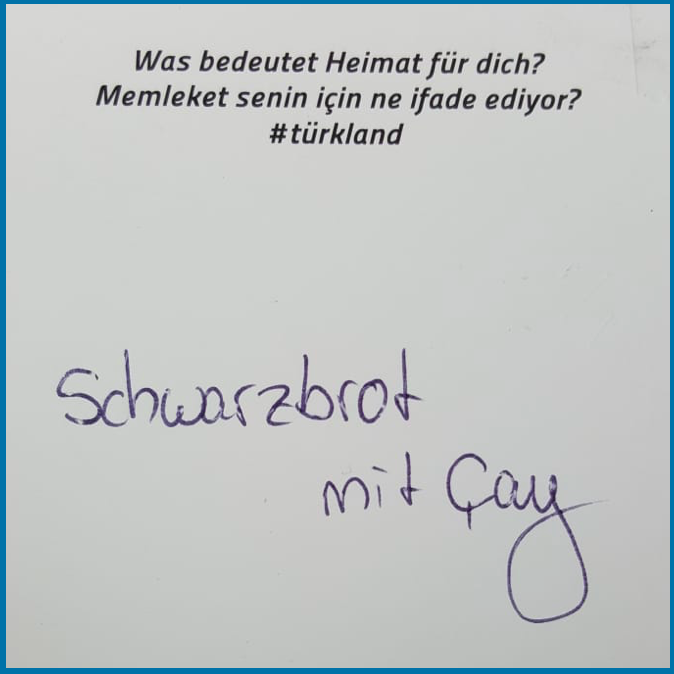 Was bedeutet Heimat für dich?
Memleket senin için ne ifade ediyor?
#türkland
Schwarzbrot
mit Çay